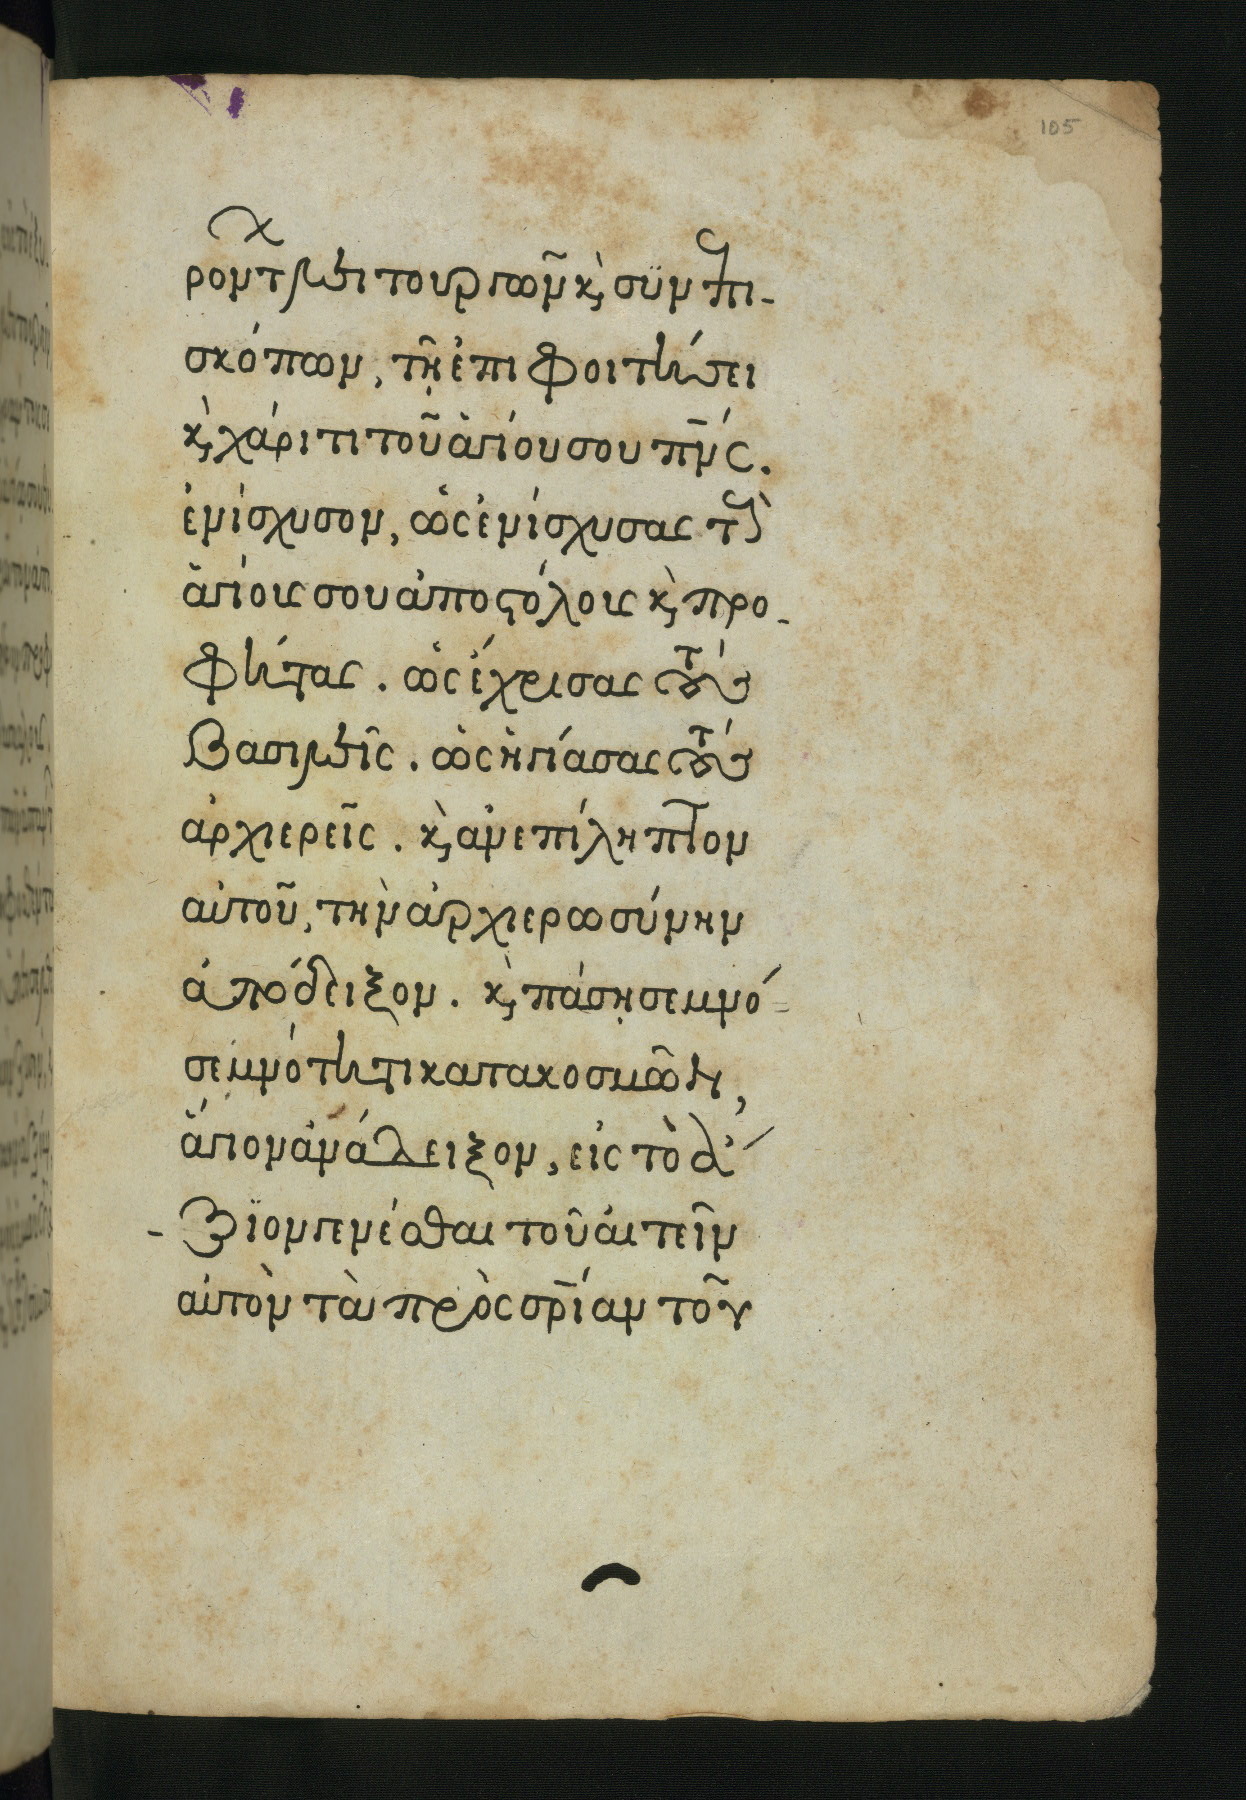 105
ρον τῶν λειτουργῶν κ(αὶ) συνεπι-
σκόπων, τῇ ἐπιφοιτήσει
κ(αὶ) χάριτι τοῦ ἁγίου σου πν(εύματο)ς.
ἐνίσχυσον, ὡς ἐνίσχυσας τοὺς
ἁγίους σου ἀποστόλους κ(αὶ) προ-
φήτας. ὡς ἔχρισας τοὺς
βασιλεῖς. ὡς ἡγίασας τοὺς
ἀρχιερεῖς. κ(αὶ) ἀνεπίληπτον
αὐτοῦ, τὴν ἀρχιερωσύνην
ἀπόδειξον. κ(αὶ) πάσῃ σεμνό
σεμνότητι κατακοσμῶν,
ἅγιον ἀνάδειξον, εἰς τὸ ἄ
ξιον γενέσθαι τοῦ αἰτεῖν
αὐτὸν τὰ πρὸς σ(ωτη)ρίαν τοῦ